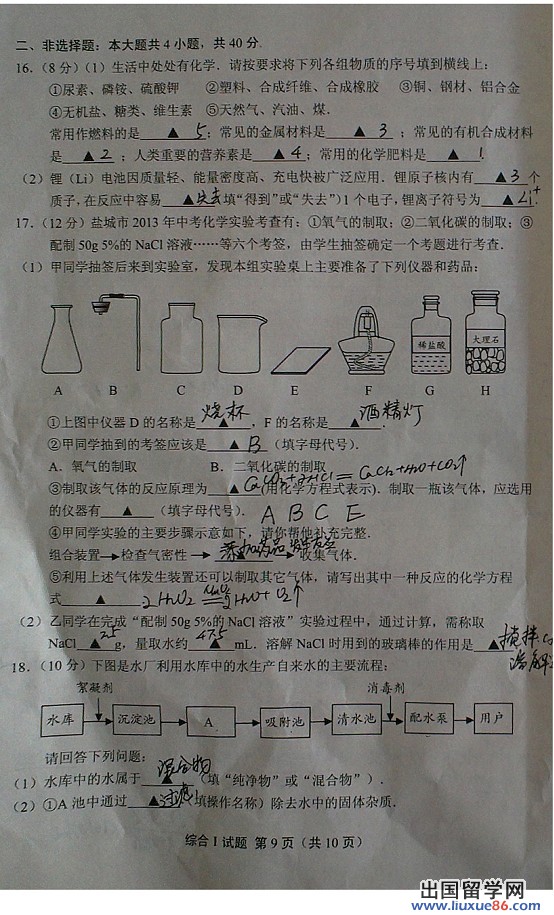 二、非选择题：本大题共 4 小题，共 40 分.
16.（8 分）（1）生活中处处有化学．请按要求将下列各组物质的序号填到横线上：
①尿素、磷铵、硫酸钾 ②塑料、合成纤维、合成橡胶 ③铜、钢材、铝合金
④无机盐、糖类、维生素 ⑤天然气、汽油、煤．
常用作燃料的是 ▲ 5；常见的金属材料是 ▲ 3；常见的有机合成材料
是 ▲ 2；人类重要的营养素是 ▲ 4；常用的化学肥料是 ▲ 1
（2）锂（Li）电池因质量轻、能量密度高、充电快被广泛应用．锂原子核内有 ▲ 3 个
质子,在反应中容易 ▲ 失去 填“得到”或“失去”）1 个电子,锂离子符号为 ▲ Li⁺
17.（12 分）盐城市 2013 年中考化学实验考查有：①氧气的制取；②二氧化碳的制取；③
配制 50g 5%的 NaCl 溶液……等六个考签，由学生抽签确定一个考题进行考查．
（1）甲同学抽签后来到实验室，发现本组实验桌上主要准备了下列仪器和药品：
稀盐酸 大理石
A B C D E F G H
①上图中仪器 D 的名称是 ▲ 烧杯，F 的名称是 ▲ 酒精灯
②甲同学抽到的考签应该是 ▲ B（填字母代号）．
A．氧气的制取 B．二氧化碳的制取
③制取该气体的反应原理为 ▲ CaCO3+2HCl=CaCl2+H2O+CO2↑(用化学方程式表示)．制取一瓶该气体，应选用
的仪器有 ▲ （填字母代号）． A B C E
④甲同学实验的主要步骤示意如下，请你帮他补充完整．
组合装置→检查气密性→ ▲ 添加药品 收集气体．
⑤利用上述气体发生装置还可以制取其它气体，请写出其中一种反应的化学方程
式 ▲ 2H2O2 MnO2 2H2O+O2↑
（2）乙同学在完成“配制 50g 5%的 NaCl 溶液”实验过程中，通过计算，需称取
NaCl ▲ 2.5 g，量取水约 ▲ 47.5 mL．溶解 NaCl 时用到的玻璃棒的作用是 ▲ 搅拌
溶解
18.（10 分）下图是水厂利用水库中的水生产自来水的主要流程：
絮凝剂 消毒剂
水库 沉淀池 A 吸附池 清水池 配水泵 用户
请回答下列问题：
（1）水库中的水属于 ▲ 混合物（填“纯净物”或“混合物”）．
（2）①A 池中通过 ▲ 过滤 填操作名称）除去水中的固体杂质．
综合 I 试题 第 9 页（共 10 页）
出国留学网
www.liuxue86.com